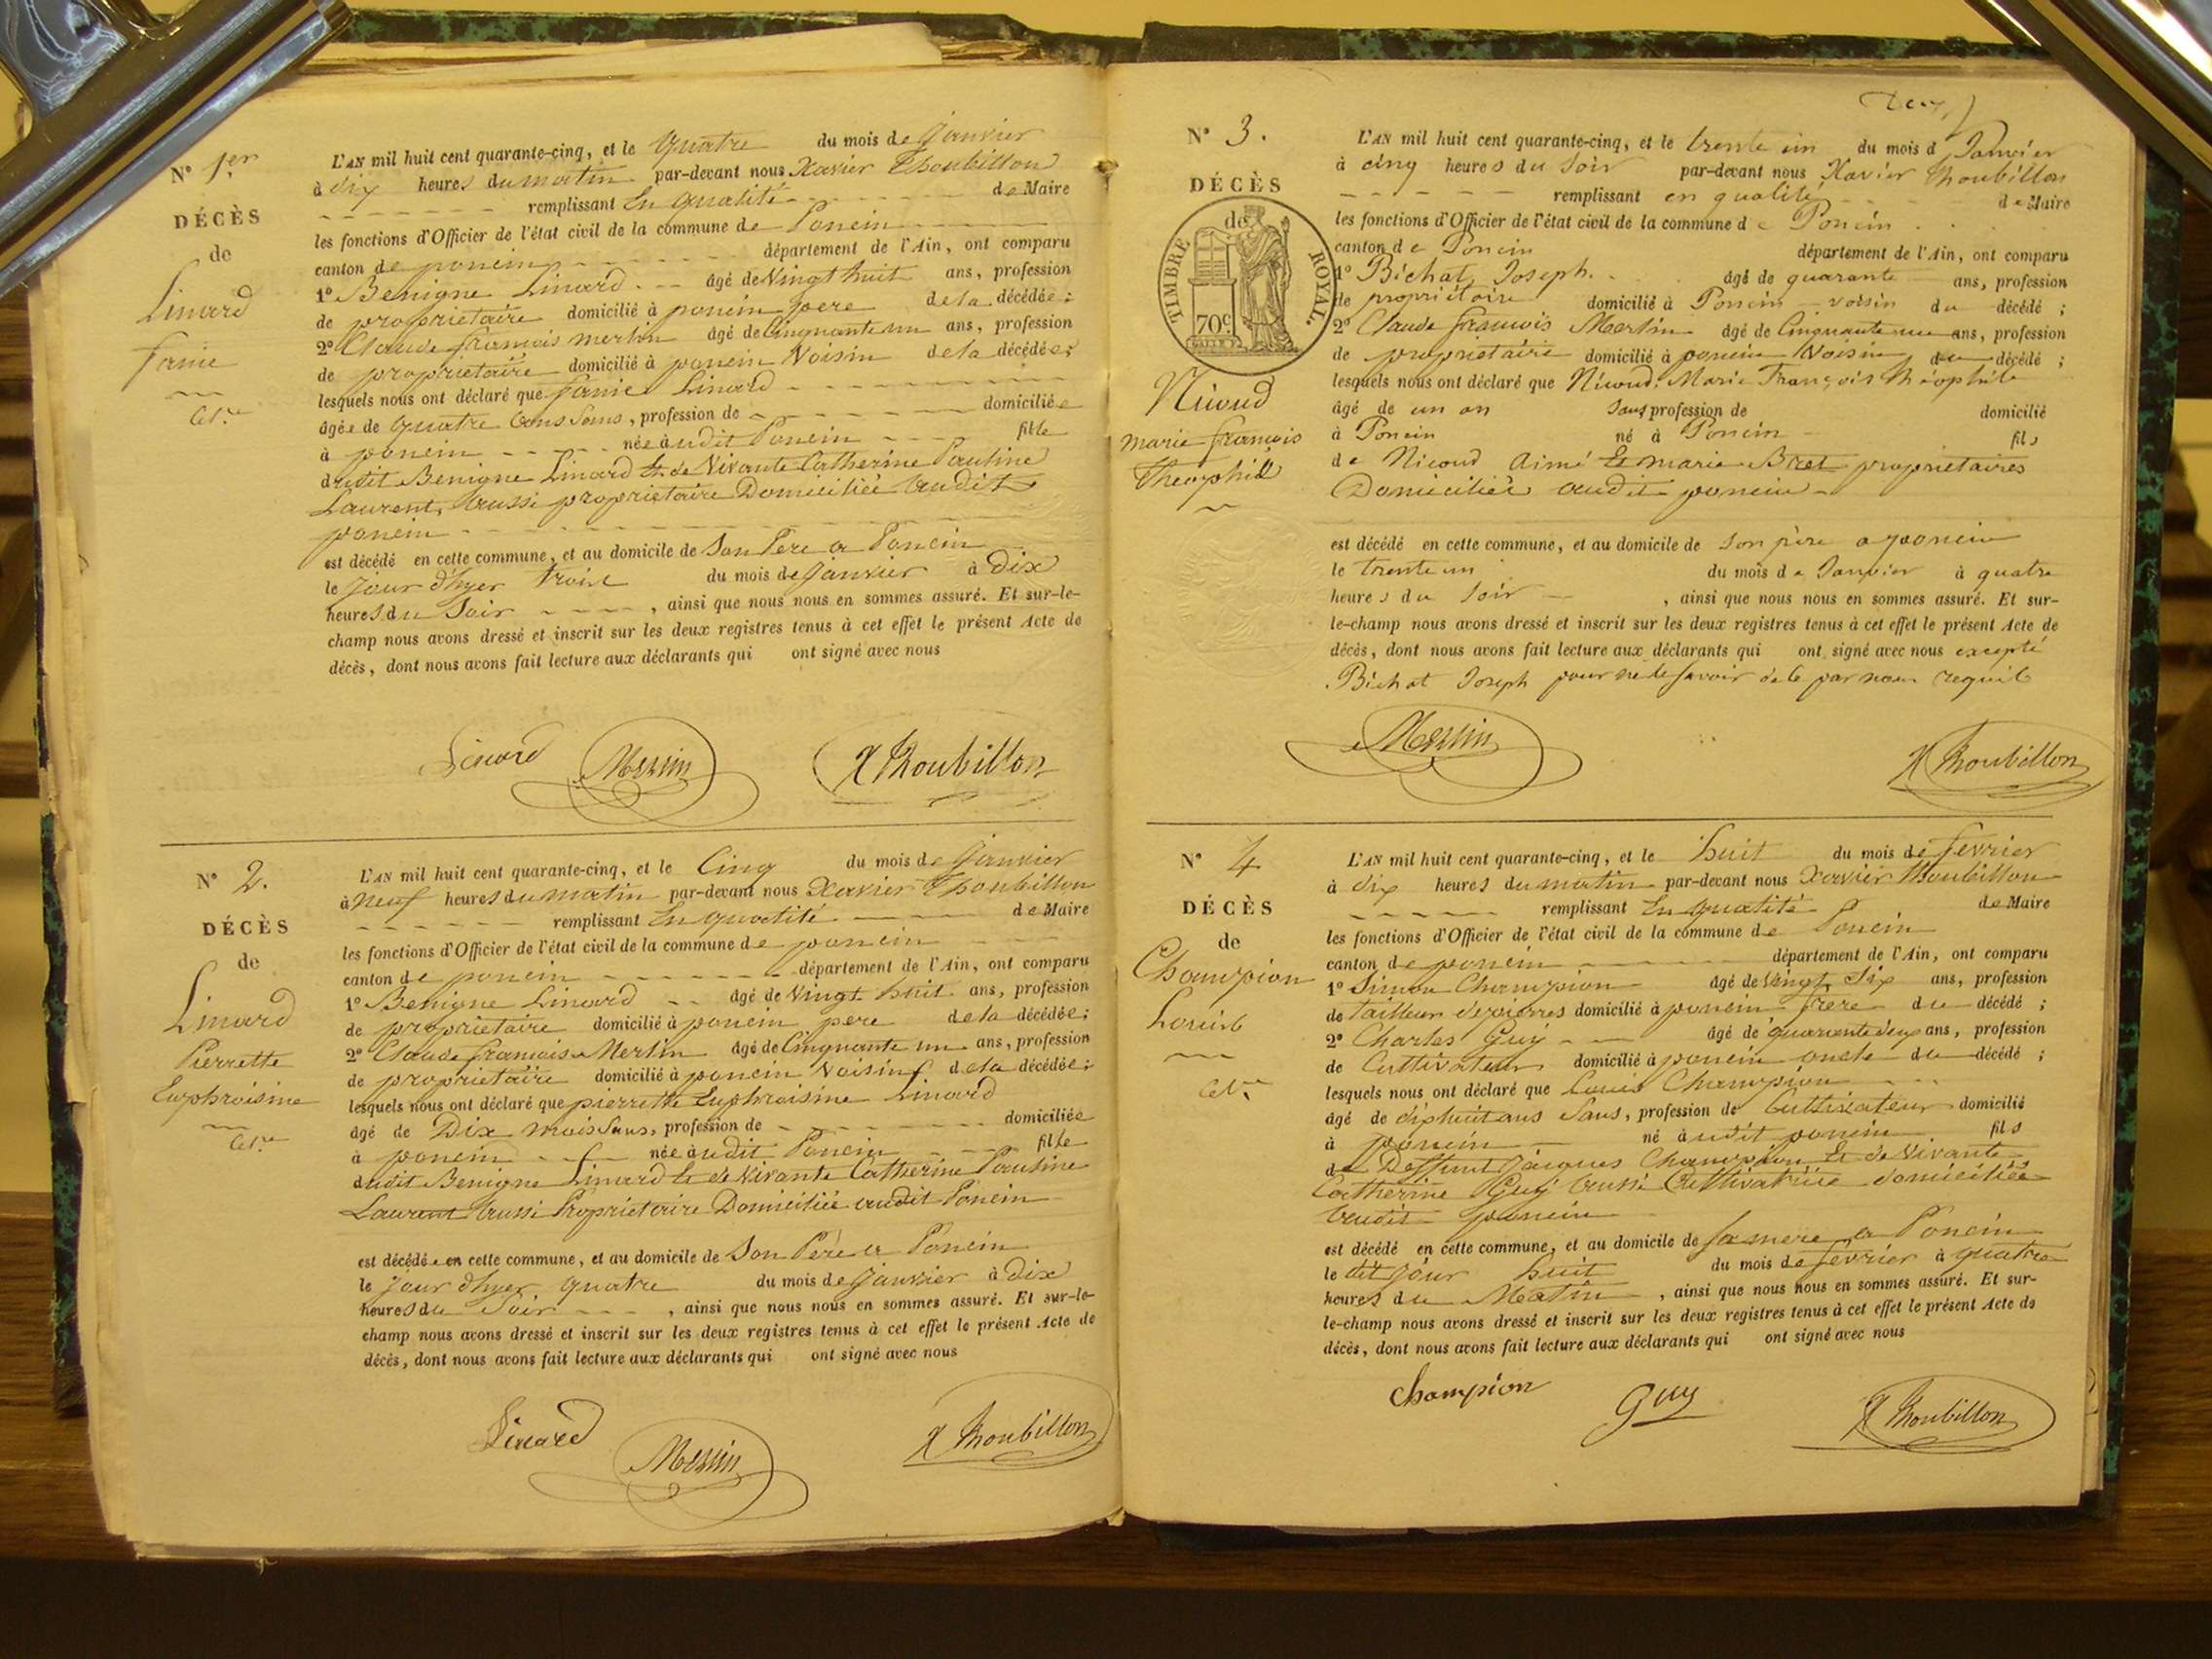 N° 1.er
DÉCÈS
de
Linard
Fanie
Cél.re
L'AN mil huit cent quarante-cinq, et le quatre du mois de Janvier
à dix heures du matin par-devant nous Xavier Thoubillon
remplissant En qualité de Maire
les fonctions d'Officier de l'état civil de la commune de Poncin
canton de poncin département de l'Ain, ont comparu
1° Benigne Linard âgé de Vingt huit ans, profession
de proprietaire domicilié à poncin pere de la décédée ;
2° Claude françois merlin âgé de Cinquante un ans, profession
de proprietaire domicilié à poncin Voisin de la décédée ;
lesquels nous ont déclaré que fanie Linard
âgée de quatre ans Sans, profession de domiciliée
à poncin née audit Poncin fille
dudit Benigne Linard Et de Vivante Catherine Pauline
Laurent, aussi proprietaire Domiciliée audit
poncin
est décédé en cette commune, et au domicile de Son Pere a Poncin
le Jour d'hyer trois du mois de Janvier à Dix
heures du Soir , ainsi que nous nous en sommes assuré. Et sur-le-
champ nous avons dressé et inscrit sur les deux registres tenus à cet effet le présent Acte de
décès, dont nous avons fait lecture aux déclarants qui ont signé avec nous
Linard Merlin X Thoubillon
N° 2.
DÉCÈS
de
Linard
Pierrette
Euphroisine
Cél.re
L'AN mil huit cent quarante-cinq, et le Cinq du mois de Janvier
à Neuf heures du matin par-devant nous Xavier Thoubillon
remplissant En qualité de Maire
les fonctions d'Officier de l'état civil de la commune de poncin
canton de poncin département de l'Ain, ont comparu
1° Benigne Linard âgé de Vingt huit ans, profession
de proprietaire domicilié à poncin pere de la décédée ;
2° Claude françois Merlin âgé de Cinquante un ans, profession
de proprietaire domicilié à poncin Voisin de la décédée ;
lesquels nous ont déclaré que pierrette Euphroisine Linard
âgé de Dix mois Sans, profession de domiciliée
à poncin née audit Poncin fille
dudit Benigne Linard Et de Vivante Catherine Pauline
Laurent aussi Proprietaire Domiciliée audit Poncin
est décédée en cette commune, et au domicile de Son Père a Poncin
le Jour d'hyer quatre du mois de Janvier à Dix
heures du Soir , ainsi que nous nous en sommes assuré. Et sur-le-
champ nous avons dressé et inscrit sur les deux registres tenus à cet effet le présent Acte de
décès, dont nous avons fait lecture aux déclarants qui ont signé avec nous
Linard Merlin X Thoubillon
N° 3.
DÉCÈS
de
TIMBRE ROYAL.
70c
Nicoud
marie françois
Theophile
L'AN mil huit cent quarante-cinq, et le trente un du mois d Janvier
à cinq heures du Soir par-devant nous Xavier Thoubillon
remplissant en qualité de Maire
les fonctions d'Officier de l'état civil de la commune de Poncin
canton de Poncin département de l'Ain, ont comparu
1° Bichat Joseph âgé de quarante ans, profession
de propriétaire domicilié à Poncin voisin du décédé ;
2° Claude françois Merlin âgé de Cinquante un ans, profession
de proprietaire domicilié à poncin Voisin du décédé ;
lesquels nous ont déclaré que Nicoud, Marie François Théophile
âgé de un an Sans profession de domicilié
à Poncin né à Poncin fils
de Nicoud Aimé Et marie Bret proprietaires
Domiciliés audit poncin
est décédé en cette commune, et au domicile de son père a poncin
le trente un du mois de Janvier à quatre
heures du Soir , ainsi que nous nous en sommes assuré. Et sur-
le-champ nous avons dressé et inscrit sur les deux registres tenus à cet effet le présent Acte de
décès, dont nous avons fait lecture aux déclarants qui ont signé avec nous excepté
Bichat Joseph pour ne le savoir de ce par nous requis
Merlin X Thoubillon
N° 4
DÉCÈS
de
Champion
Louis
Cél.re
L'AN mil huit cent quarante-cinq, et le huit du mois de fevrier
à dix heures du matin par-devant nous Xavier Thoubillon
remplissant En qualité de Maire
les fonctions d'Officier de l'état civil de la commune de Poncin
canton de poncin département de l'Ain, ont comparu
1° Simon Champion âgé de Vingt Six ans, profession
de tailleur de pierres domicilié à poncin frere du décédé ;
2° Charles Guy âgé de quarante deux ans, profession
de Cultivateur domicilié à poncin oncle du décédé ;
lesquels nous ont déclaré que Louis Champion
âgé de diphuit ans Sans, profession de Cultivateur domicilié
à poncin né audit poncin fils
de Deffunt Jacques Champion Et de Vivante
Catherine Guy aussi Cultivatrice domiciliée
audit poncin
est décédé en cette commune, et au domicile de sa mere a Poncin
le dit jour huit du mois de fevrier à quatre
heures du Matin , ainsi que nous nous en sommes assuré. Et sur-
le-champ nous avons dressé et inscrit sur les deux registres tenus à cet effet le présent Acte de
décès, dont nous avons fait lecture aux déclarants qui ont signé avec nous
Champion Guy X Thoubillon